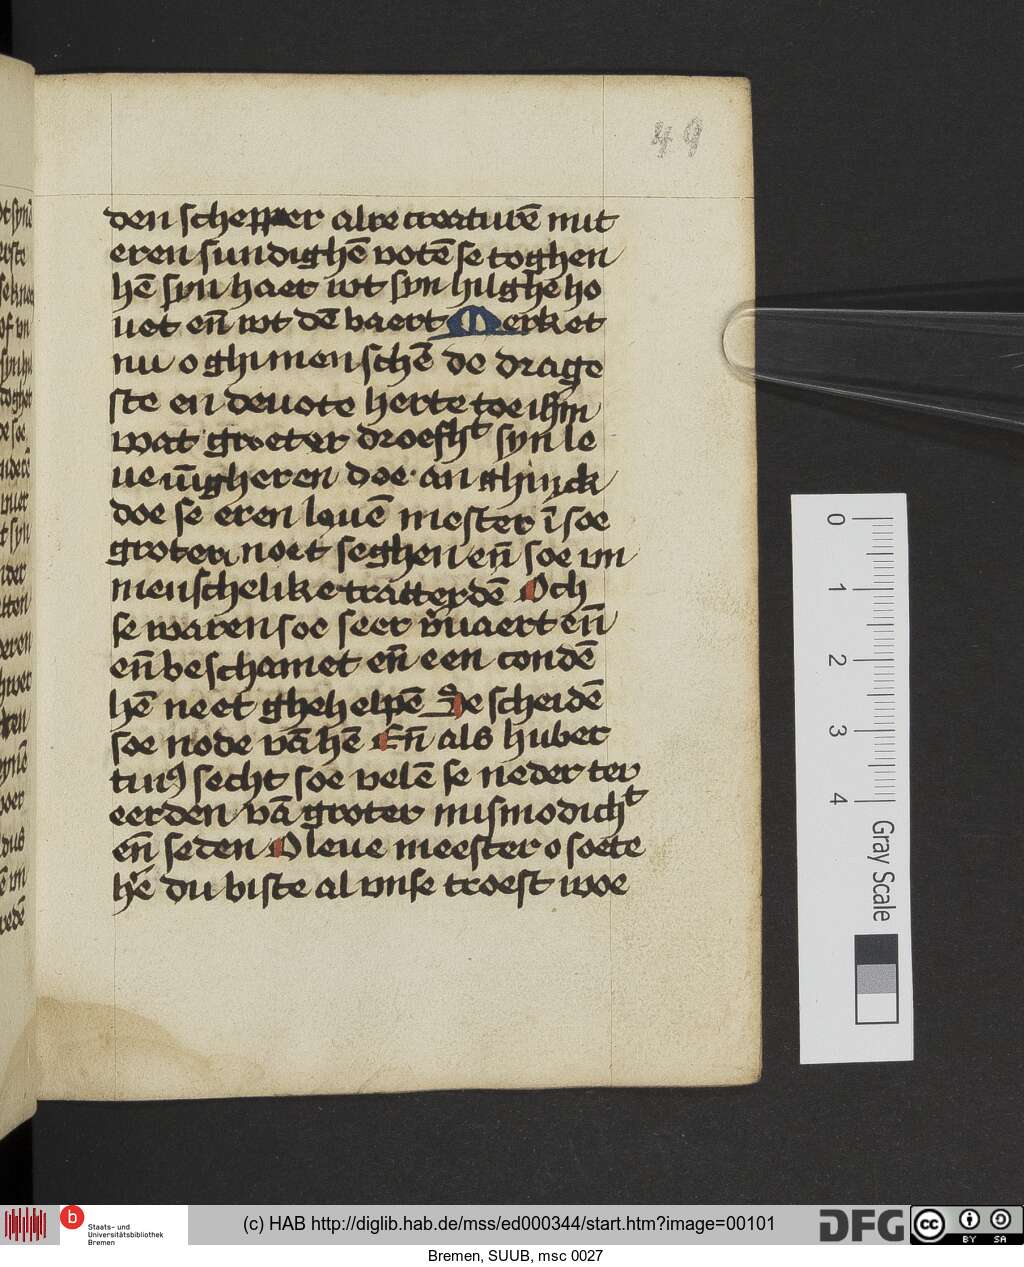 49
den schepper alre creaturē mit
eren sundighē votē se toghen
hē syn haer wt syn hilghe ho
uet eñ wt dē baert Merket
nu o ghi menschē de drage
ste en deuote herte toe ihm
wat groeter droefhᵗ syn le
ue iūgheren doe an ghinck
doe se eren leuē mester ī soe
groter noet seghen eñ soe vn
menschelike tracterdē Och
se waren soe seer v̄uaert eñ
eñ beschamet eñ een condē
hē neet ghehelpē Se scheidē
soe node vā hē Eñ als huber
tinꝰ secht soe velē se neder ter
eerden vā groter mismodichᵗ
eñ seden O leue meester o soete
h̄e du biste al vnse troest woe
0
1
2
3
4
Gray Scale
b
Staats- und
Universitätsbibliothek
Bremen
(c) HAB http://diglib.hab.de/mss/ed000344/start.htm?image=00101
DFG
cc BY SA
Bremen, SUUB, msc 0027